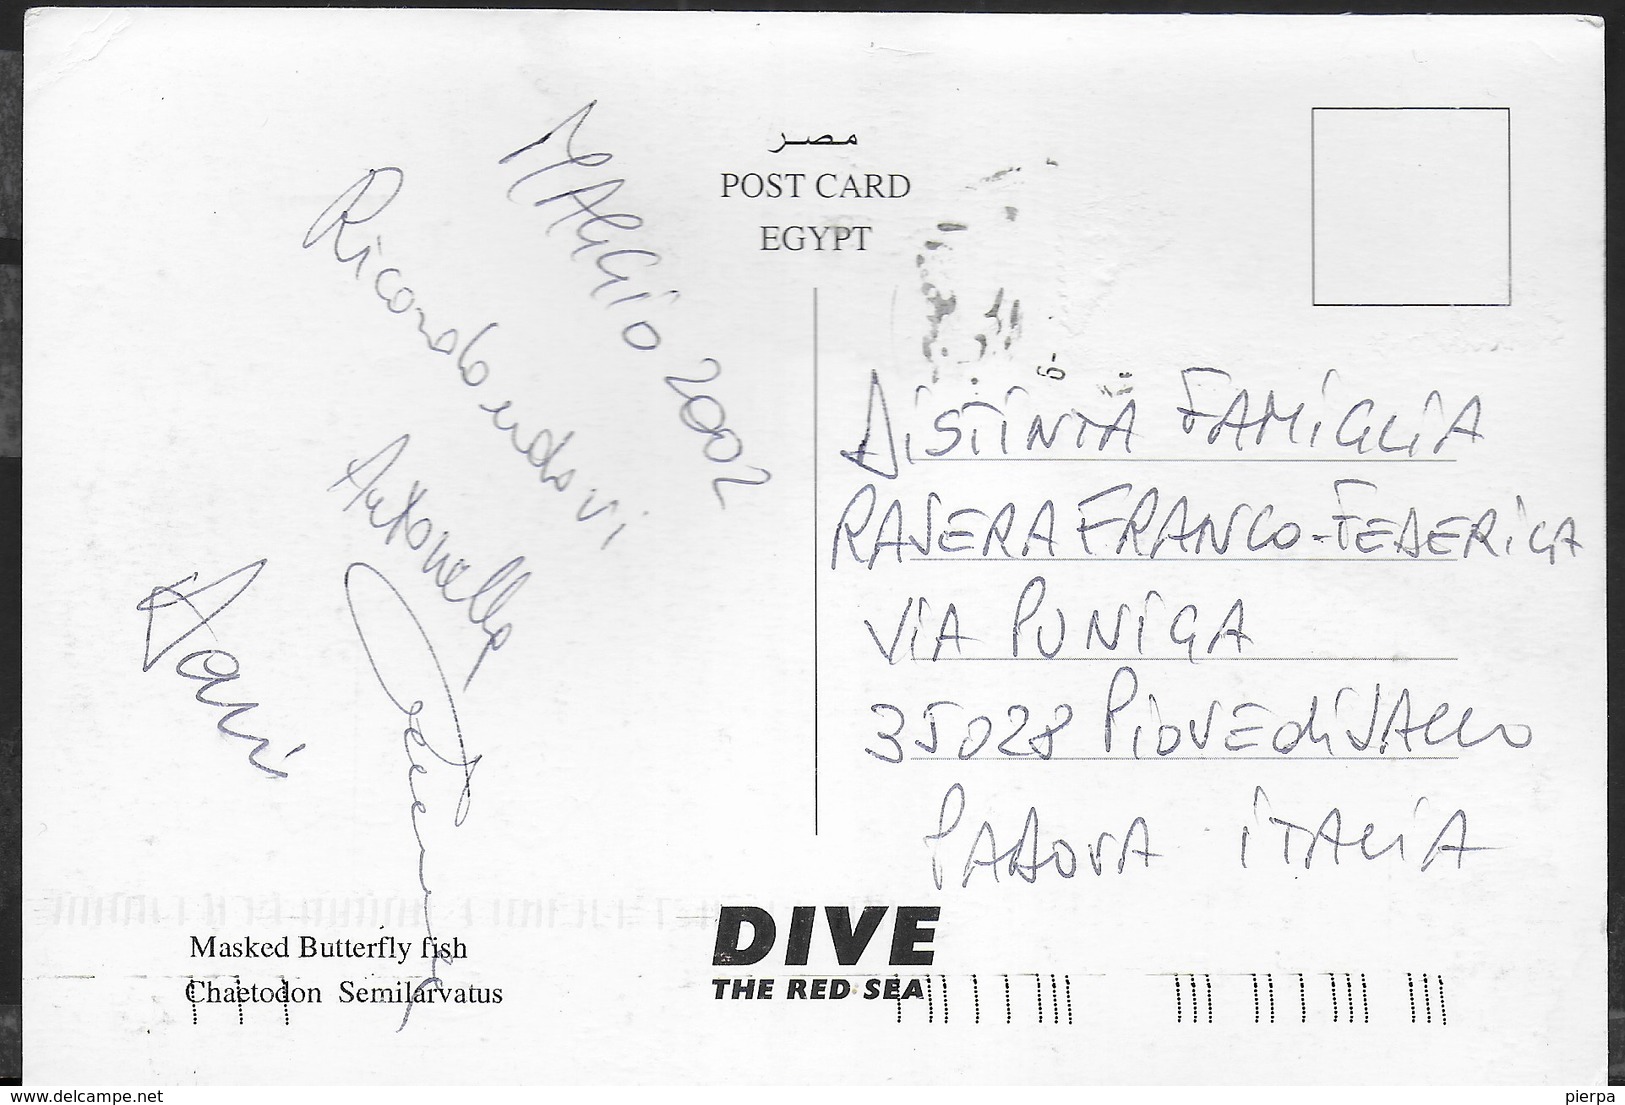 مصر
POST CARD
EGYPT
MAGGIO 2002
Ricordandovi
Antonella
DISTINTA FAMIGLIA
RASERA FRANCO-FEDERICA
VIA PUNIGA
35028 PIOVE di SACCO
PADOVA ITALIA
Masked Butterfly fish
Chaetodon Semilarvatus
DIVE
THE RED SEA
delcampe.net
pierpa